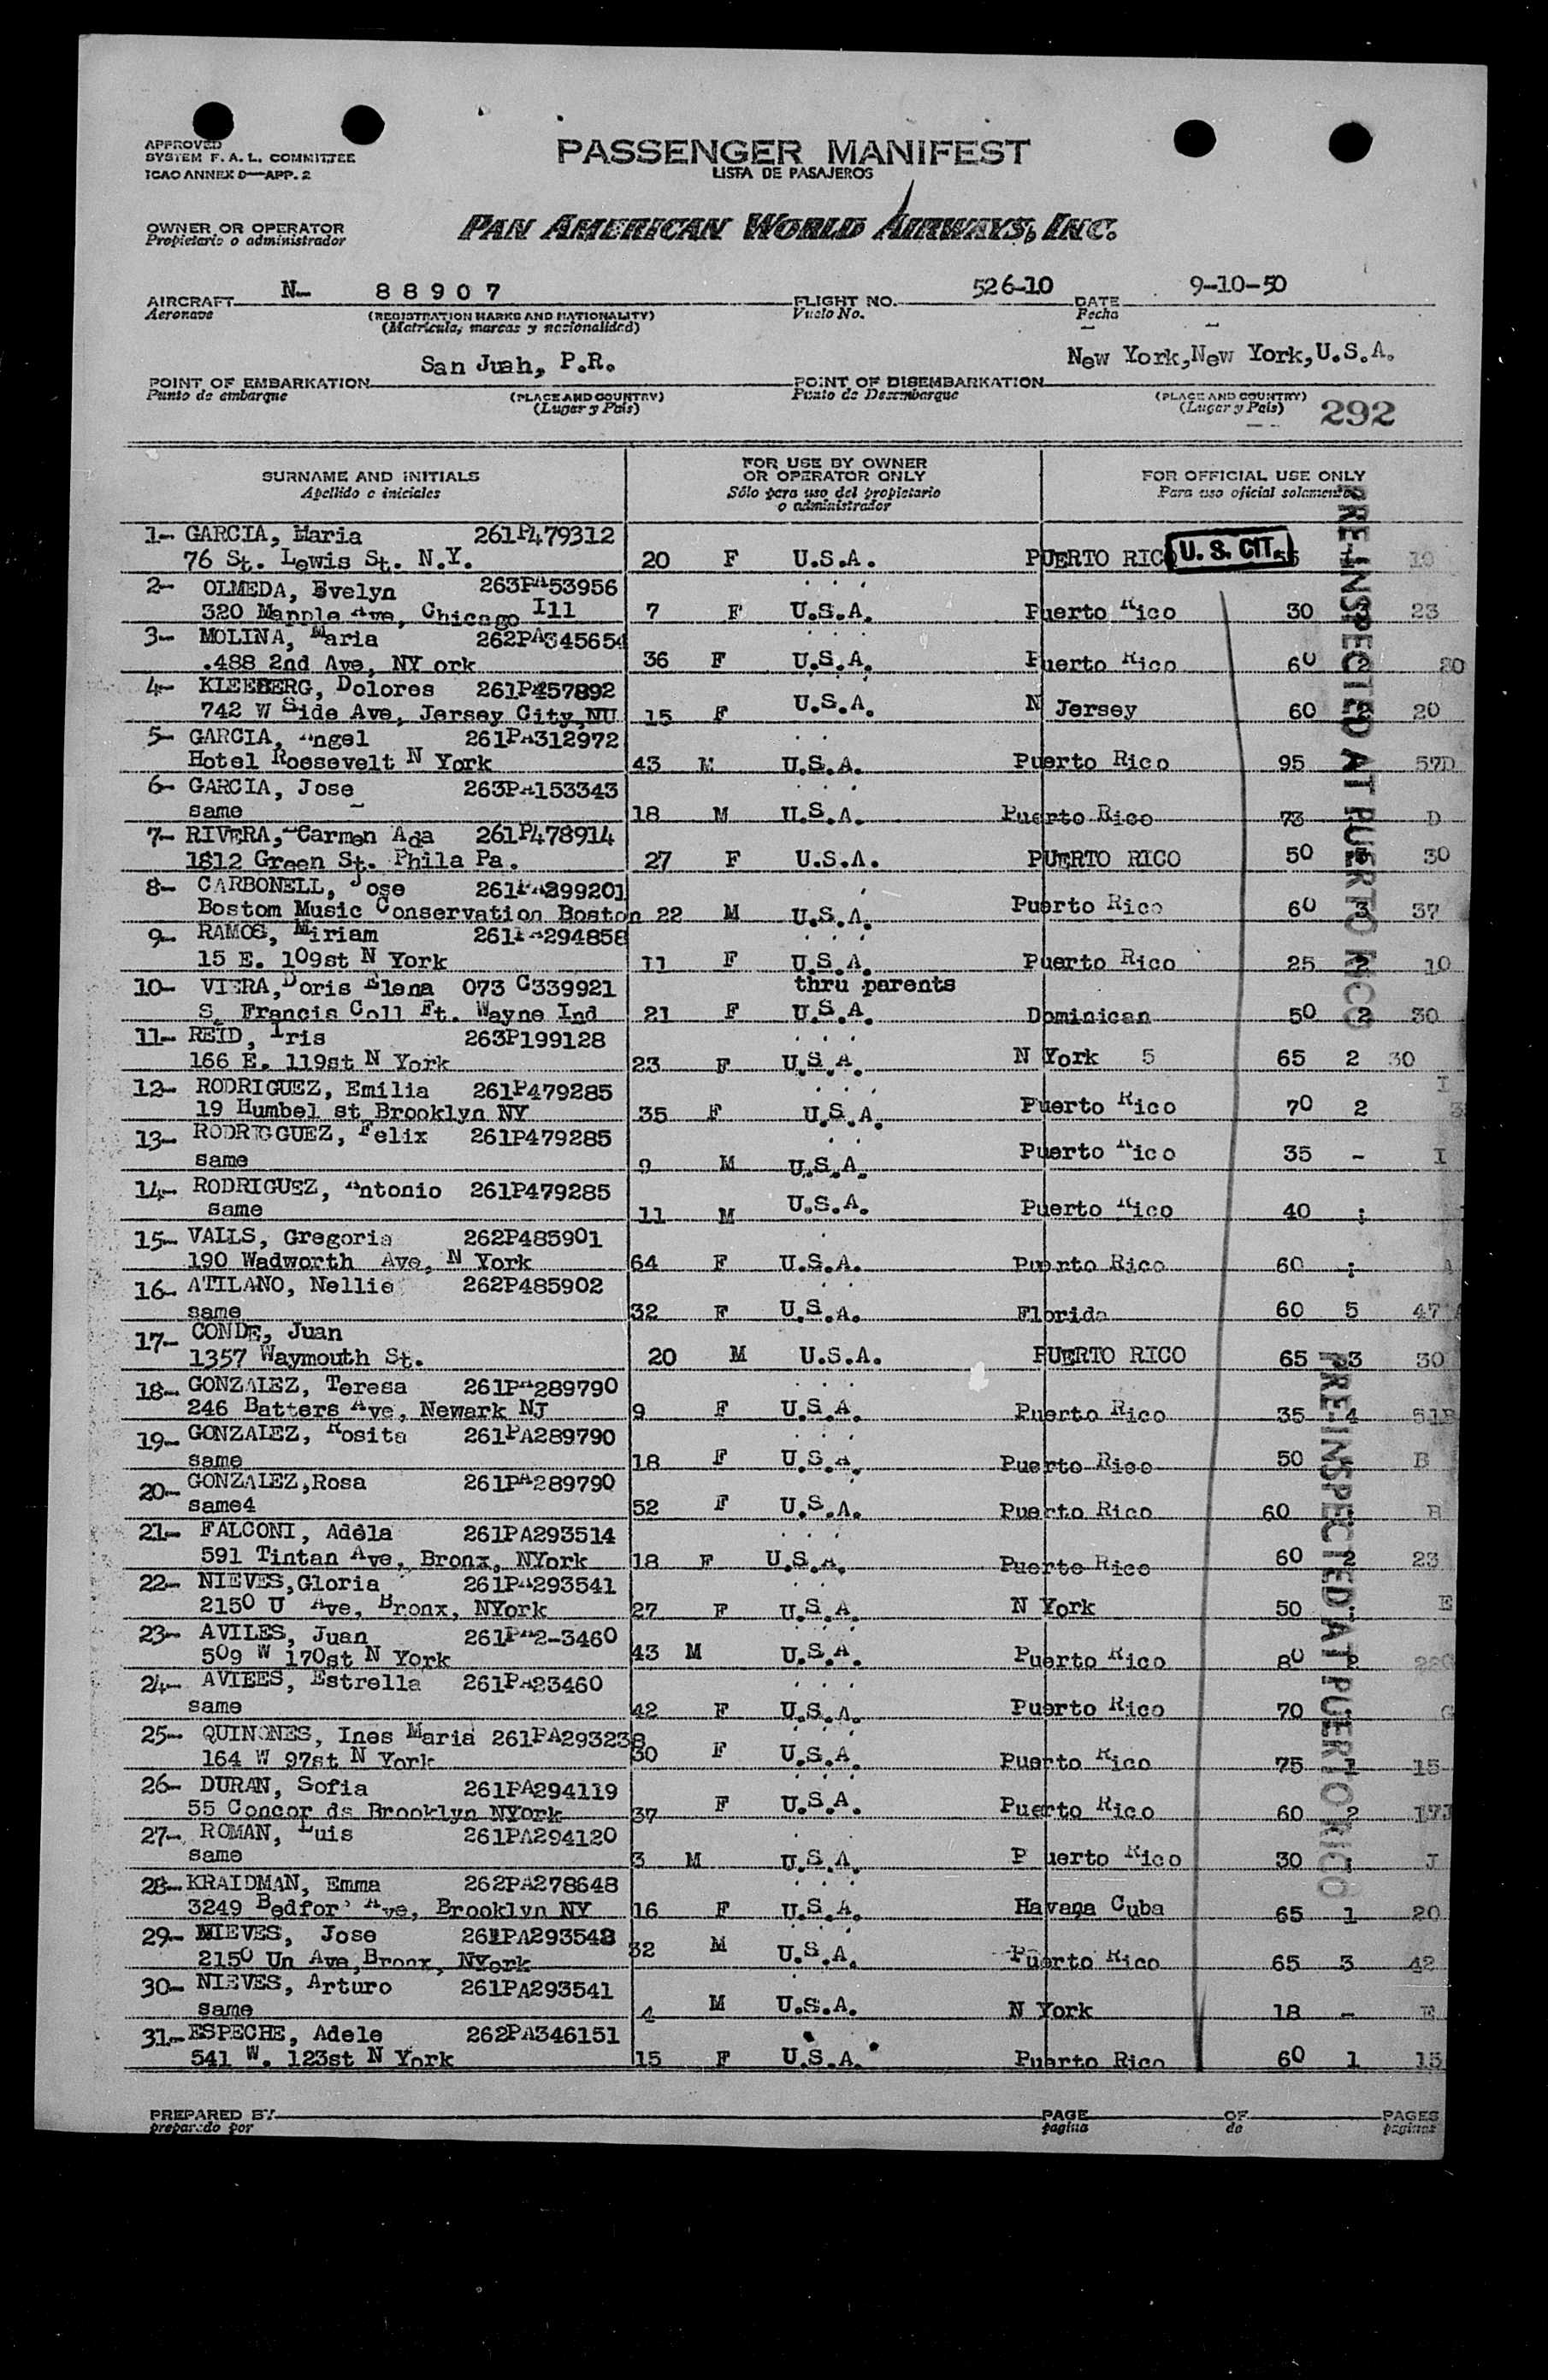 APPROVED
SYSTEM F. A. L. COMMITTEE
ICAO ANNEX 9—APP. 2
PASSENGER MANIFEST
LISTA DE PASAJEROS
OWNER OR OPERATOR
Propietario o administrador
PAN AMERICAN WORLD AIRWAYS, INC.
AIRCRAFT N- 88907 FLIGHT NO. 526-10 DATE 9-10-50
Aeronave (REGISTRATION MARKS AND NATIONALITY) Vuelo No. Fecha
(Matricula, marcas y nacionalidad)
San Juah, P.R. New York,New York,U.S.A.
POINT OF EMBARKATION POINT OF DISEMBARKATION
Punto de embarque (PLACE AND COUNTRY) Punto de Desembarque (PLACE AND COUNTRY)
(Lugar y Pais) (Lugar y Pais) 292
SURNAME AND INITIALS FOR USE BY OWNER OR OPERATOR ONLY FOR OFFICIAL USE ONLY
Apellido e iniciales Sólo para uso del propietario o administrador Para uso oficial solamente
1- GARCIA, Maria 261P479312
76 St. Lewis St. N.Y. 20 F U.S.A. PUERTO RICO U. S. CIT.
2- OLMEDA, Evelyn 263PA53956
320 Mapple Ave, Chicago Ill 7 F U.S.A. Puerto Rico 30 23
3- MOLINA, Maria 262PA345654
.488 2nd Ave, NY ork 36 F U.S.A. Puerto Rico 60 2
4- KLEEBERG, Dolores 261P457892
742 W Side Ave, Jersey City,NU 15 F U.S.A. N Jersey 60 20
5- GARCIA, Angel 261PA312972
Hotel Roesevelt N York 43 M U.S.A. Puerto Rico 95 57D
6- GARCIA, Jose 263PA153343
same 18 M U.S.A. Puerto Rico 73 D
7- RIVERA, Carmen Ada 261P478914
1812 Green St. Phila Pa. 27 F U.S.A. PUERTO RICO 50 30
8- CARBONELL, Jose 261PA299201
Bostom Music Conservation Boston 22 M U.S.A. Puerto Rico 60 3 37
9- RAMOS, Miriam 261PA294858
15 E. 109st N York 11 F U.S.A. Puerto Rico 25 2 10
10- VIERA,Doris Elena 073 C339921 thru parents
S. Francis Coll Ft. Wayne Ind 21 F U.S.A. Dominican 50 2 30
11- REID, Iris 263P199128
166 E. 119st N York 23 F U.S.A. N York 5 65 2 30
12- RODRIGUEZ, Emilia 261P479285 I
19 Humbel st Brooklyn NY 35 F U.S.A. Puerto Rico 70 2
13- RODRIGGUEZ, Felix 261P479285
same 9 M U.S.A. Puerto Rico 35 - I
14- RODRIGUEZ, Antonio 261P479285
same 11 M U.S.A. Puerto Rico 40 ;
15- VALLS, Gregoria 262P485901
190 Wadworth Ave, N York 64 F U.S.A. Puerto Rico 60 ; A
16- ATILANO, Nellie 262P485902
same 32 F U.S.A. Florida 60 5 47
17- CONDE, Juan
1357 Waymouth St. 20 M U.S.A. PUERTO RICO 65 3 30
18- GONZALEZ, Teresa 261PA289790
246 Batters Ave, Newark NJ 9 F U.S.A. Puerto Rico 35 4 51B
19- GONZALEZ, Rosita 261PA289790
same 18 F U.S.A. Puerto Rico 50 B
20- GONZALEZ,Rosa 261PA289790
same4 52 F U.S.A. Puerto Rico 60 B
21- FALCONI, Adela 261PA293514
591 Tintan Ave, Bronx, NYork 18 F U.S.A. Puerto Rico 60 2 23
22- NIEVES,Gloria 261PA293541
2150 U Ave, Bronx, NYork 27 F U.S.A. N York 50 E
23- AVILES, Juan 261PA2-3460
509 W 170st N York 43 M U.S.A. Puerto Rico 80 2
24- AVIEES, Estrella 261PA23460
same 42 F U.S.A. Puerto Rico 70 G
25- QUINONES, Ines Maria 261PA293238
164 W 97st N York 30 F U.S.A. Puerto Rico 75 15
26- DURAN, Sofia 261PA294119
55 Concor ds Brooklyn NYork 37 F U.S.A. Puerto Rico 60 2 17J
27- ROMAN, Luis 261PA294120
same 3 M U.S.A. P uerto Rico 30 J
28- KRAIDMAN, Emma 262PA278648
3249 Bedfor Ave, Brooklyn NY 16 F U.S.A. Havana Cuba 65 1 20
29- NIEVES, Jose 261PA293548
2150 Un Ave,Bronx, NYork 32 M U.S.A. Puerto Rico 65 3 42
30- NIEVES, Arturo 261PA293541
same 4 M U.S.A. N York 18 - E
31- ESPECHE, Adele 262PA346151
541 W. 123st N York 15 F U.S.A. Puerto Rico 60 1 15
PRE-INSPECTED AT PUERTO RICO
PRE-INSPECTED AT PUERTO RICO
PREPARED BY PAGE OF PAGES
preparado por pagina de paginas